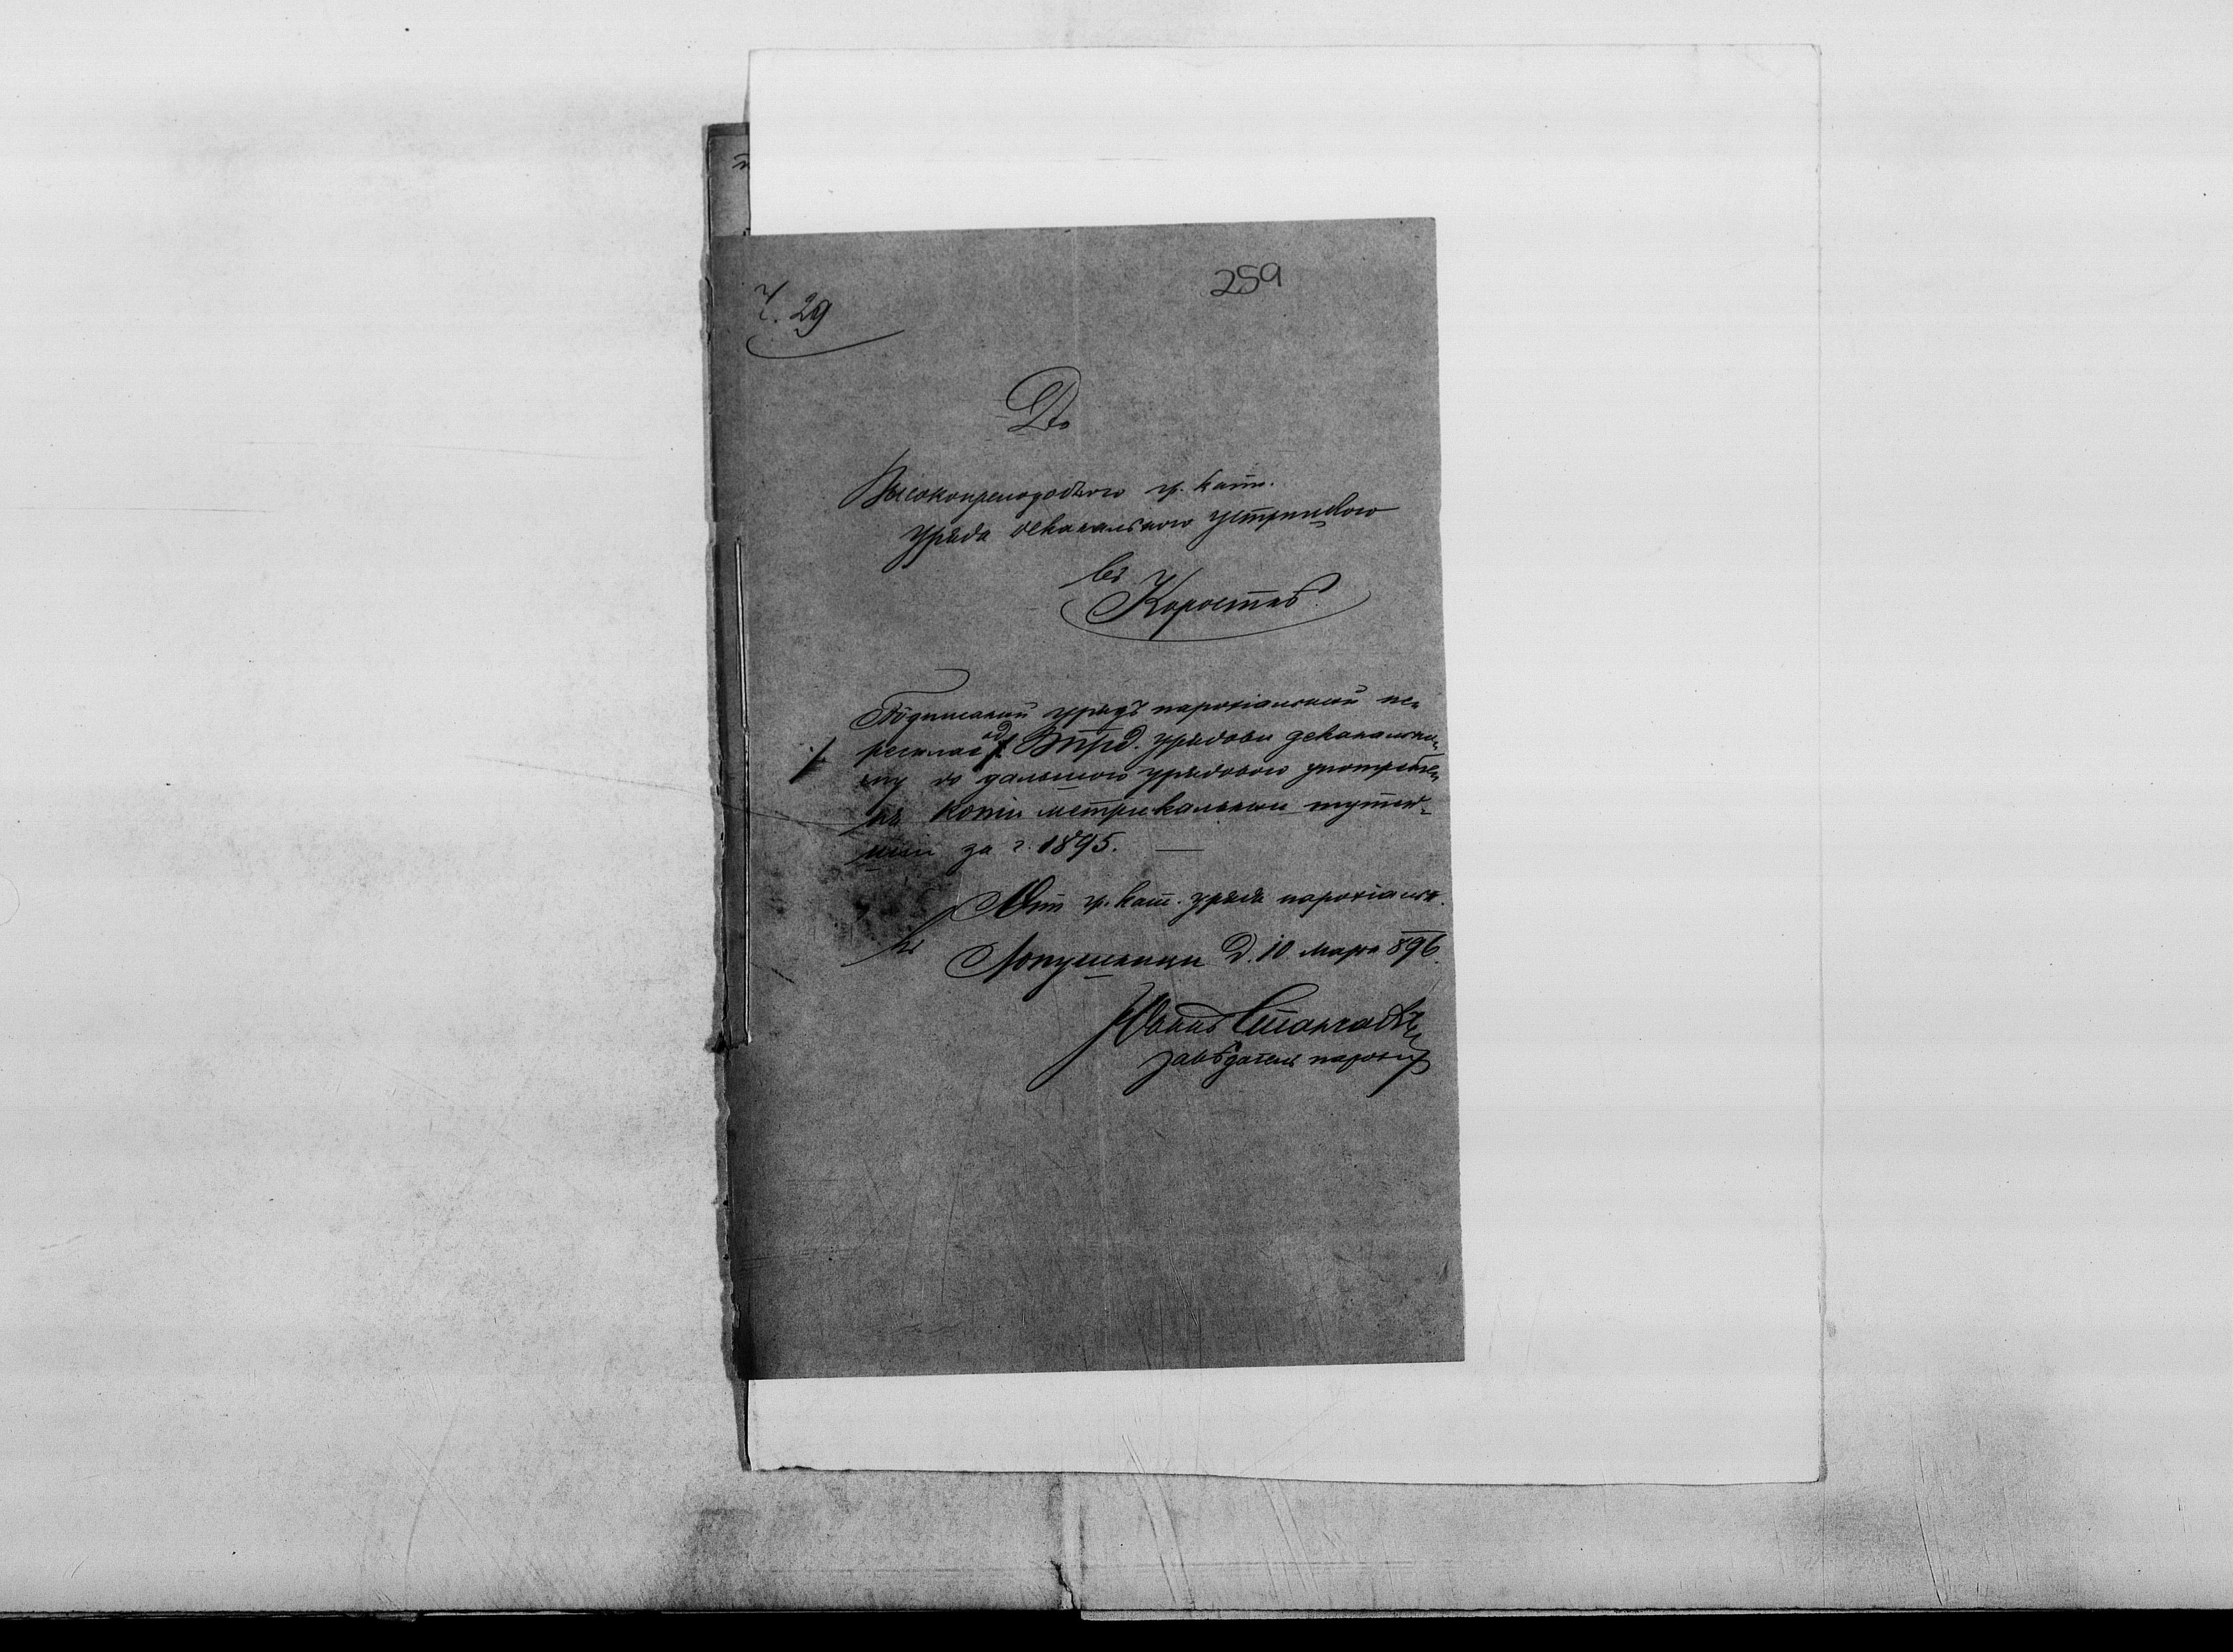 259
Ч. 29
До
Высокопреподобного гр. кат.
уряда деканального Устрицкого
въ
Коростнѣ.
Подписаный урядъ парохіальный пе-
ресилає ad ./. Впрд. урядови деканально-
./. му до дальшого урядового употребле-
нія копіи метрикальныи тутей-
шіи за г. 1895. —
Отъ гр. кат. уряда парохіальн.
въ Лопушници д. 10 марта 896.
Іоаннъ
завѣдатель парохіи